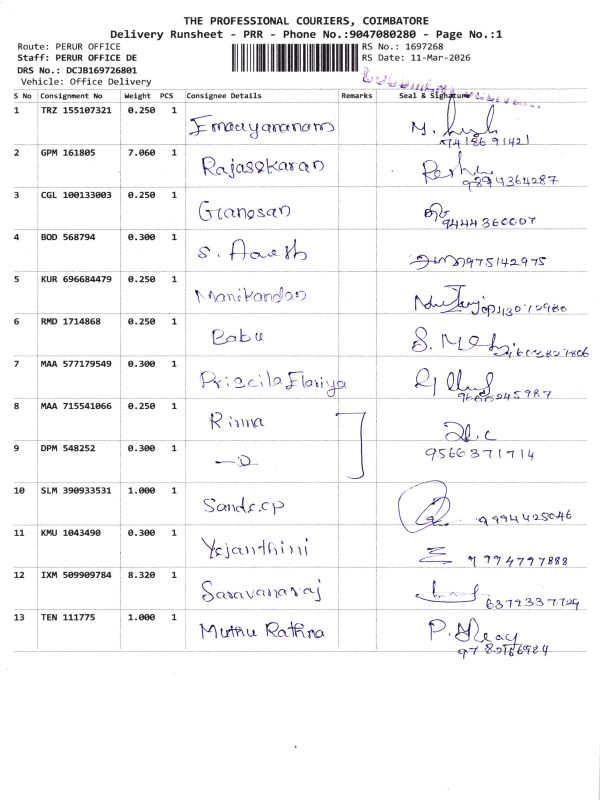 THE PROFESSIONAL COURIERS, COIMBATORE
Delivery Runsheet - PRR - Phone No.:9047080280 - Page No.:1
Route: PERUR OFFICE RS No.: 1697268
Staff: PERUR OFFICE DE RS Date: 11-Mar-2026
DRS No.: DCJB169726801
Vehicle: Office Delivery
S No Consignment No Weight PCS Consignee Details Remarks Seal & Signature
1 TRZ 155107321 0.250 1
2 GPM 161805 7.060 1 Rajasekaran
9894364287
3 CGL 100133003 0.250 1 Gianesan
9444360007
4 BOD 568794 0.300 1 S.
975142975
5 KUR 696684479 0.250 1 Manikandan
6 RMD 1714868 0.250 1 Babu
7 MAA 577179549 0.300 1 Priscila Floriya
8 MAA 715541066 0.250 1 Rinna
9 DPM 548252 0.300 1
9566371714
10 SLM 390933531 1.000 1 Sandeep
9994425046
11 KMU 1043490 0.300 1 Yejanthini
9994797888
12 IXM 509909784 8.320 1 Saravanaraj
6379337729
13 TEN 111775 1.000 1 Muthu Rathna